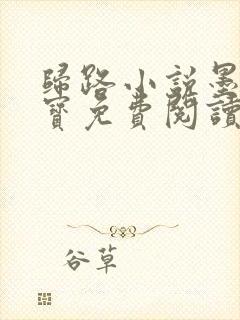 歸路小說墨
寶免費閱讀
谷草